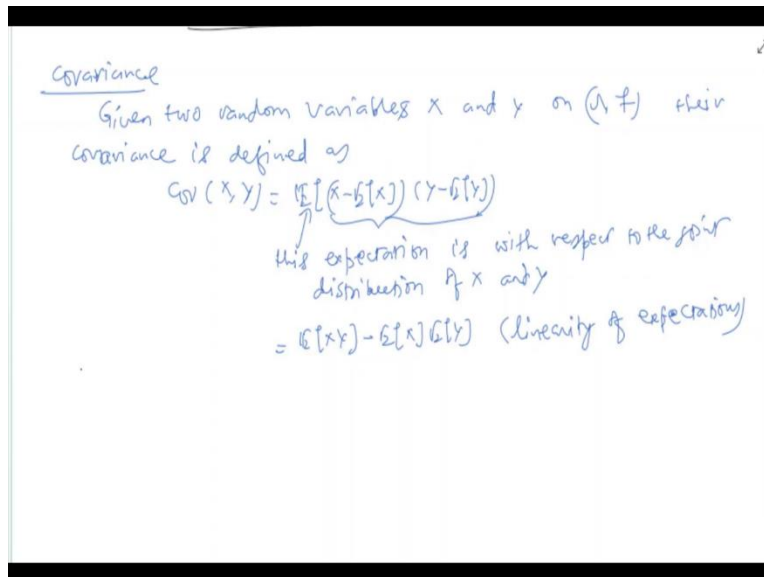 Covariance
Given two random variables X and Y on (Ω, F) their
covariance is defined as
Cov (X, Y) = E[(X-E[X]) (Y-E[Y])
this expectation is with respect to the joint
distribution of X and Y
= E[XY] - E[X] E[Y] (linearity of expectations)